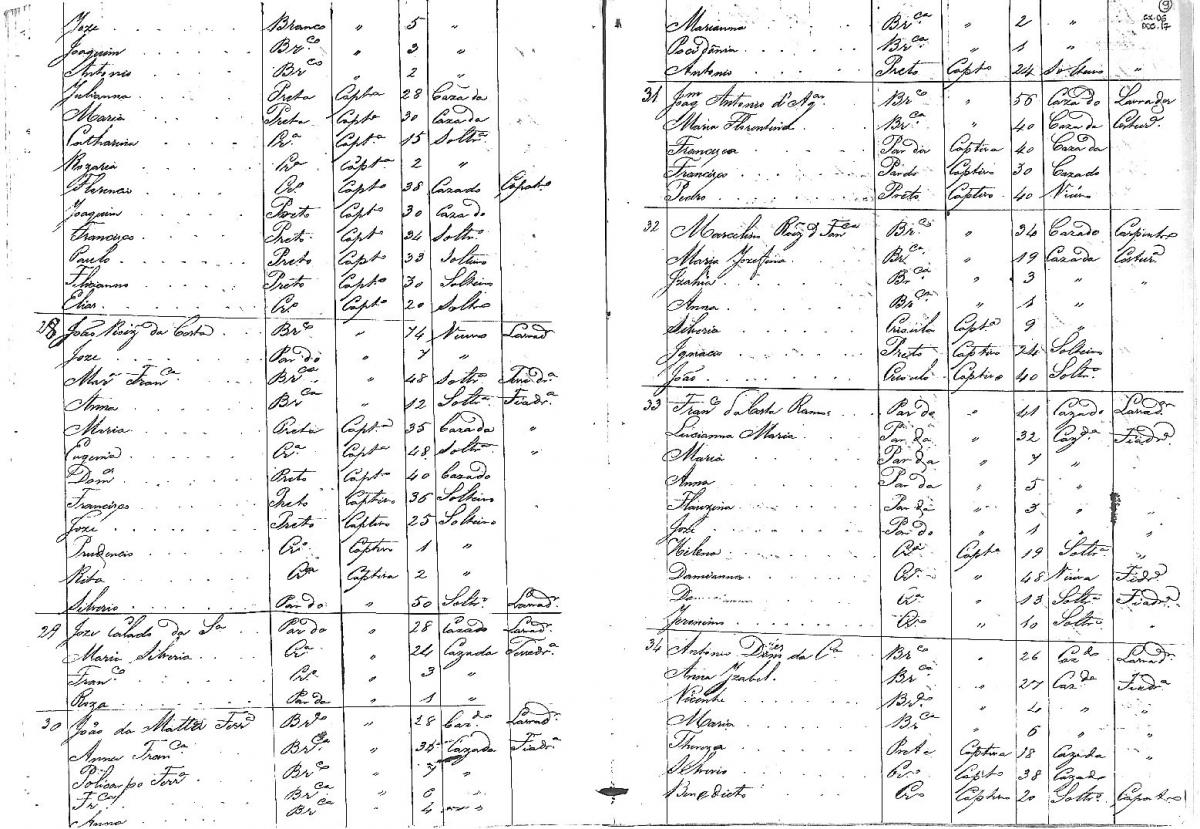 Joze Branco " 5 "
Joaquim Br.co " 3 "
Antonio Br.co " 2 "
Julianna Preta Capt.a 28 Cazada
Maria Preta Capt.a 30 Cazada
Catharina Cr.a Capt.a 15 Solt.ra
Rozaria Cr.a Capt.a 2 "
Florencio Cr.o Capt.o 38 Cazado
Joaquim Preto Capt.o 30 Cazado
Francisco Preto Capt.o 34 Solt.ro
Paulo Preto Capt.o 33 Solteiro
Filicianno Preto Capt.o 30 Solteiro
Elias Cr.o Capt.o 20 Solt.ro
28 João Roiz da Costa Br.co " 74 Viuvo Lavrad.r
Joze Pardo " 7 "
Mar.a Fran.ca Br.ca " 48 Solt.ra Fiadr.a
Anna Br.ca " 12 Solt.ra Fiadr.a
Maria Preta Capt.a 35 Cazada "
Eugenia Cr.a Capt.a 48 Solt.ra "
Dom.os Preto Capt.o 40 Cazado
Francisco Preto Captivo 36 Solteiro
Joze Preto Captivo 25 Solteiro
Prudencio Cr.o Captivo 1 "
Rita Cr.a Captiva 2 "
Silverio Pardo " 50 Solt.ro Lavrad.r
29 Joze Calado da S.a Pardo " 28 Cazado Lavrad.r
Maria Silveria Cr.a " 24 Cazada Fiadr.a
Fran.co Cr.o " 3 "
Roza Parda " 1 "
30 João da Matta Ferr.a Br.co " 28 Caz.do Lavrad.r
Anna Fran.ca Br.ca " Cazada Fiadr.a
Policarpo Ferr.a Br.co " 7 "
Br.ca " 6 "
Anna Br.ca " 4 "
9
CX.06
DOC.17
Marianna Br.ca " 2 "
Br.ca " 1 "
Antonio Preto Capt.o 24 Solteiro "
31 Joaq.m Antonio d'Ag.ar Br.co " 56 Cazado Lavrador
Maria Florentina Br.ca " 40 Cazada Costur.a
Francisca Parda Captiva 40 Cazada
Francisco Pardo Captivo 30 Cazado
Pedro Preto Captivo 40 Viuvo
32 Marcelino Roiz d Fon.ca Br.co " 34 Cazado Carpintr.o
Maria Jozefina Br.ca " 19 Cazada Costur.a
Izahia Br.ca " 3 "
Anna Br.ca " 1 "
Silveria Crioula Capt.a 9 "
Ignacio Preto Captivo 24 Solteiro
João Crioulo Captivo 40 Solt.ro
33 Fran.co da Costa Ramos Pardo " 41 Cazado Lavrad.r
Lucianna Maria Parda " 32 Caz.da Fiadr.a
Maria Parda " 7 "
Anna Parda " 5 "
Parda " 3 "
Joze Pardo " 1 "
Hilena Cr.a Capt.a 19 Solt.ra "
Damianna Cr.a " 48 Viuva Fiadr.a
Cr.a " 13 Solt.ra Fiadr.a
Jeronimo Cr.o " 10 Solt.ro "
34 Antonio da C.a Br.co " 26 Caz.do Lavrad.r
Anna Izabel Br.ca " 27 Caz.da Fiadr.a
Vicente Br.co " 4 "
Maria Br.ca " 6 "
Thereza Preta Captiva 18 Cazada "
Silverio Cr.o Capt.o 38 Cazado
Benedicto Cr.o Captivo 20 Solt.ro